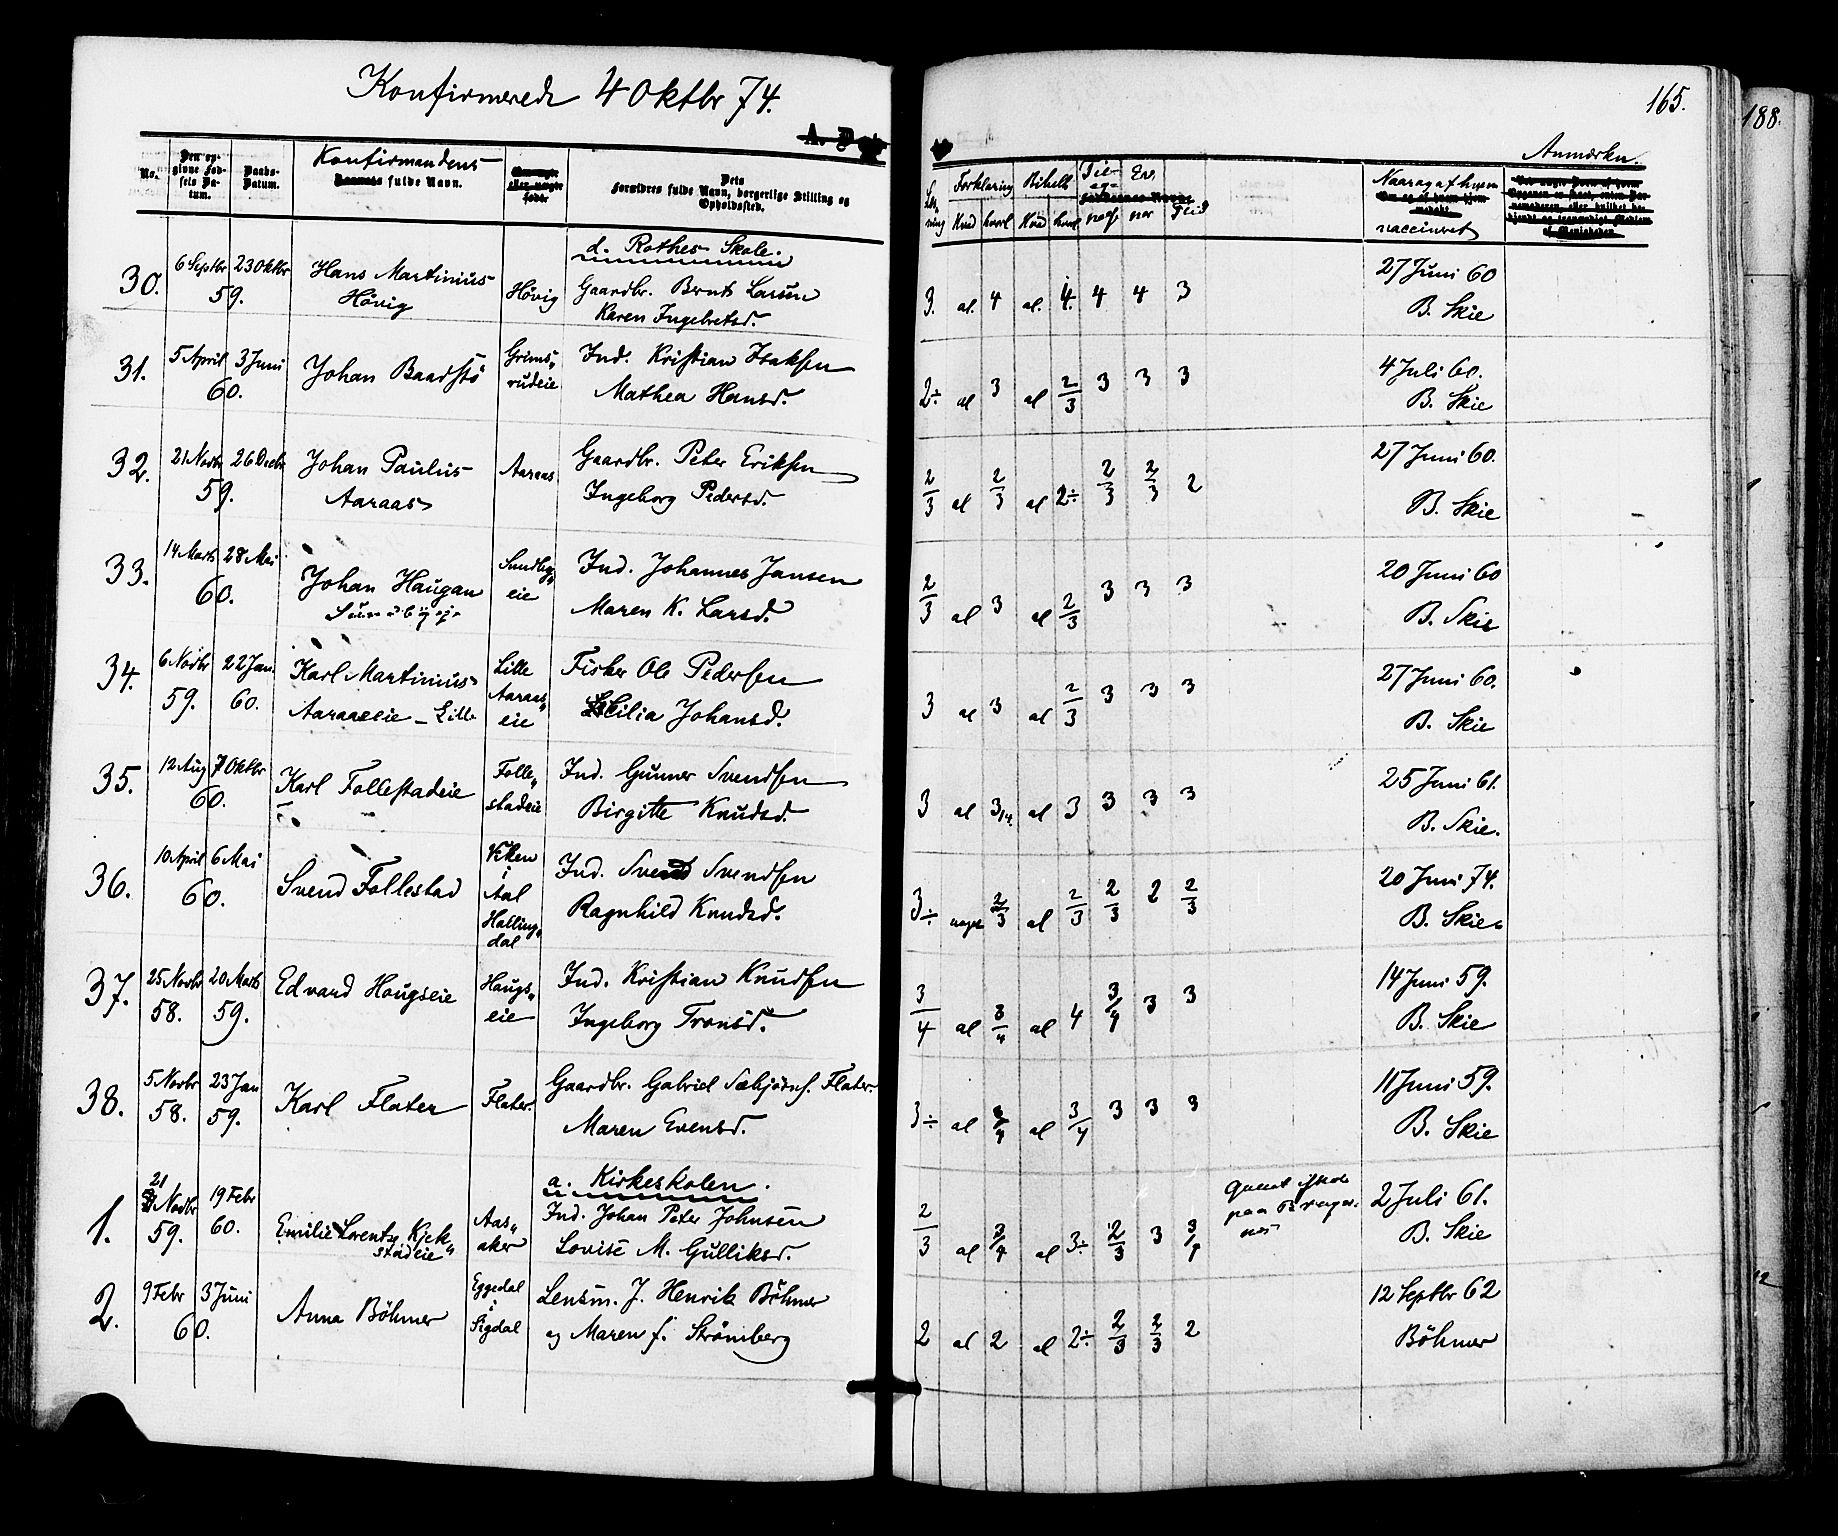 Konfirmerede 4 Oktbr 74.
165.
188.
No.
Den opgivne Fødsels Datum.
Daabs-Datum.
Konfirmandens fulde Navn.
eller uægte født
Dets Forældres fulde Navn, borgerlige Stilling og Opholdssted.
Læsning
Forklaring
Kvad hvorl
Bibelh
Kvad hvorl
Ev.
ner
Flid
Naar og af hvem vaccineret
Anmærkn.
d. Rothes Skole.
30. 6 Septbr 23 Oktbr 59. Hans Martinius Hövig
Hövig
Gaardbr. Bernt Larsen
Karen Ingebretsd.
3. al. 4 al. 4. 4 4 3
27 Juni 60
B. Skie
31. 5 April 3 Juni 60. Johan Baadstö
Grimsrudeie
Ind. Kristian Isaksen
Mathea Hansd.
2÷ al 3 al 2/3 3 3 3
4 Juli 60.
B. Skie
32. 21 Novbr 26 Decbr 59. Johan Paulus Aaraas
Aaraas
Gaardbr. Peter Eriksen
Ingeborg Pedersd.
2/3 al 2/3 al 2÷ 2/3 2/3 2
27 Juni 60.
B. Skie
33. 14 Marts 28 Mai 60. Johan Haugan
Sundbyeie
Ind. Johannes Jansen
Maren K. Larsd.
2/3 al 3 al 2/3 3 3 3
20 Juni 60
B. Skie
34. 6 Novbr 59. 22 Jan. 60. Karl Martinius
Aaraaseie - Lille
Lille Aaraaseie
Fisker Ole Pedersen
Cilia Johansd.
3 al 3 al 2/3 3 3 3
27 Juni 60.
B. Skie
35. 12 Aug 7 Oktbr 60. Karl Follestadeie
Follestadeie
Ind. Gunner Svendsen
Birgitte Knudsd.
3 al 3/4. al 3 3 3 3
25 Juni 61.
B. Skie.
36. 10 April 6 Mai 60. Svend Follestad
Viken i Aal Hallingdal
Ind. Svend Svendsen
Ragnhild Knudsd.
3÷ noget 2/3 al 2/3 2/3 2 2/3
20 Juni 74.
B. Skie
37. 25 Novbr 58. 20 Marts 59. Edvard Hougseie
Haugseie
Ind. Kristian Knudsen
Ingeborg Tronsd.
3/4 al 3/4 al 4 3/4 3 3
14 Juni 59.
B. Skie
38. 5 Novbr 58. 23 Jan 59. Karl Flater
Flater.
Gaardbr. Gabriel Sæbjörns. Flater.
Maren Evensd.
3÷ al 3/4 al 3/4 3 3 3
11 Juni 59.
B. Skie
a. Kirkeskolen.
1. 21 Novbr 59. 19 Febr 60. Emilie Lorentze Kjekstadeie
Aasaker
Ind. Johan Peter Johnsen
Lovise M. Gulliksd.
2/3 al 3/4 al 3÷ 2/3 3 3/4
2 Juli 61.
B. Skie
2. 9 Febr 3 Juni 60. Anna Böhmer
Eggedal i Sigdal
Lensm. J. Henrik Böhmer
og Maren f. Strömberg
2 al 2 al 2÷ 2/3 2/3 2
12 Septbr 62
Böhmer